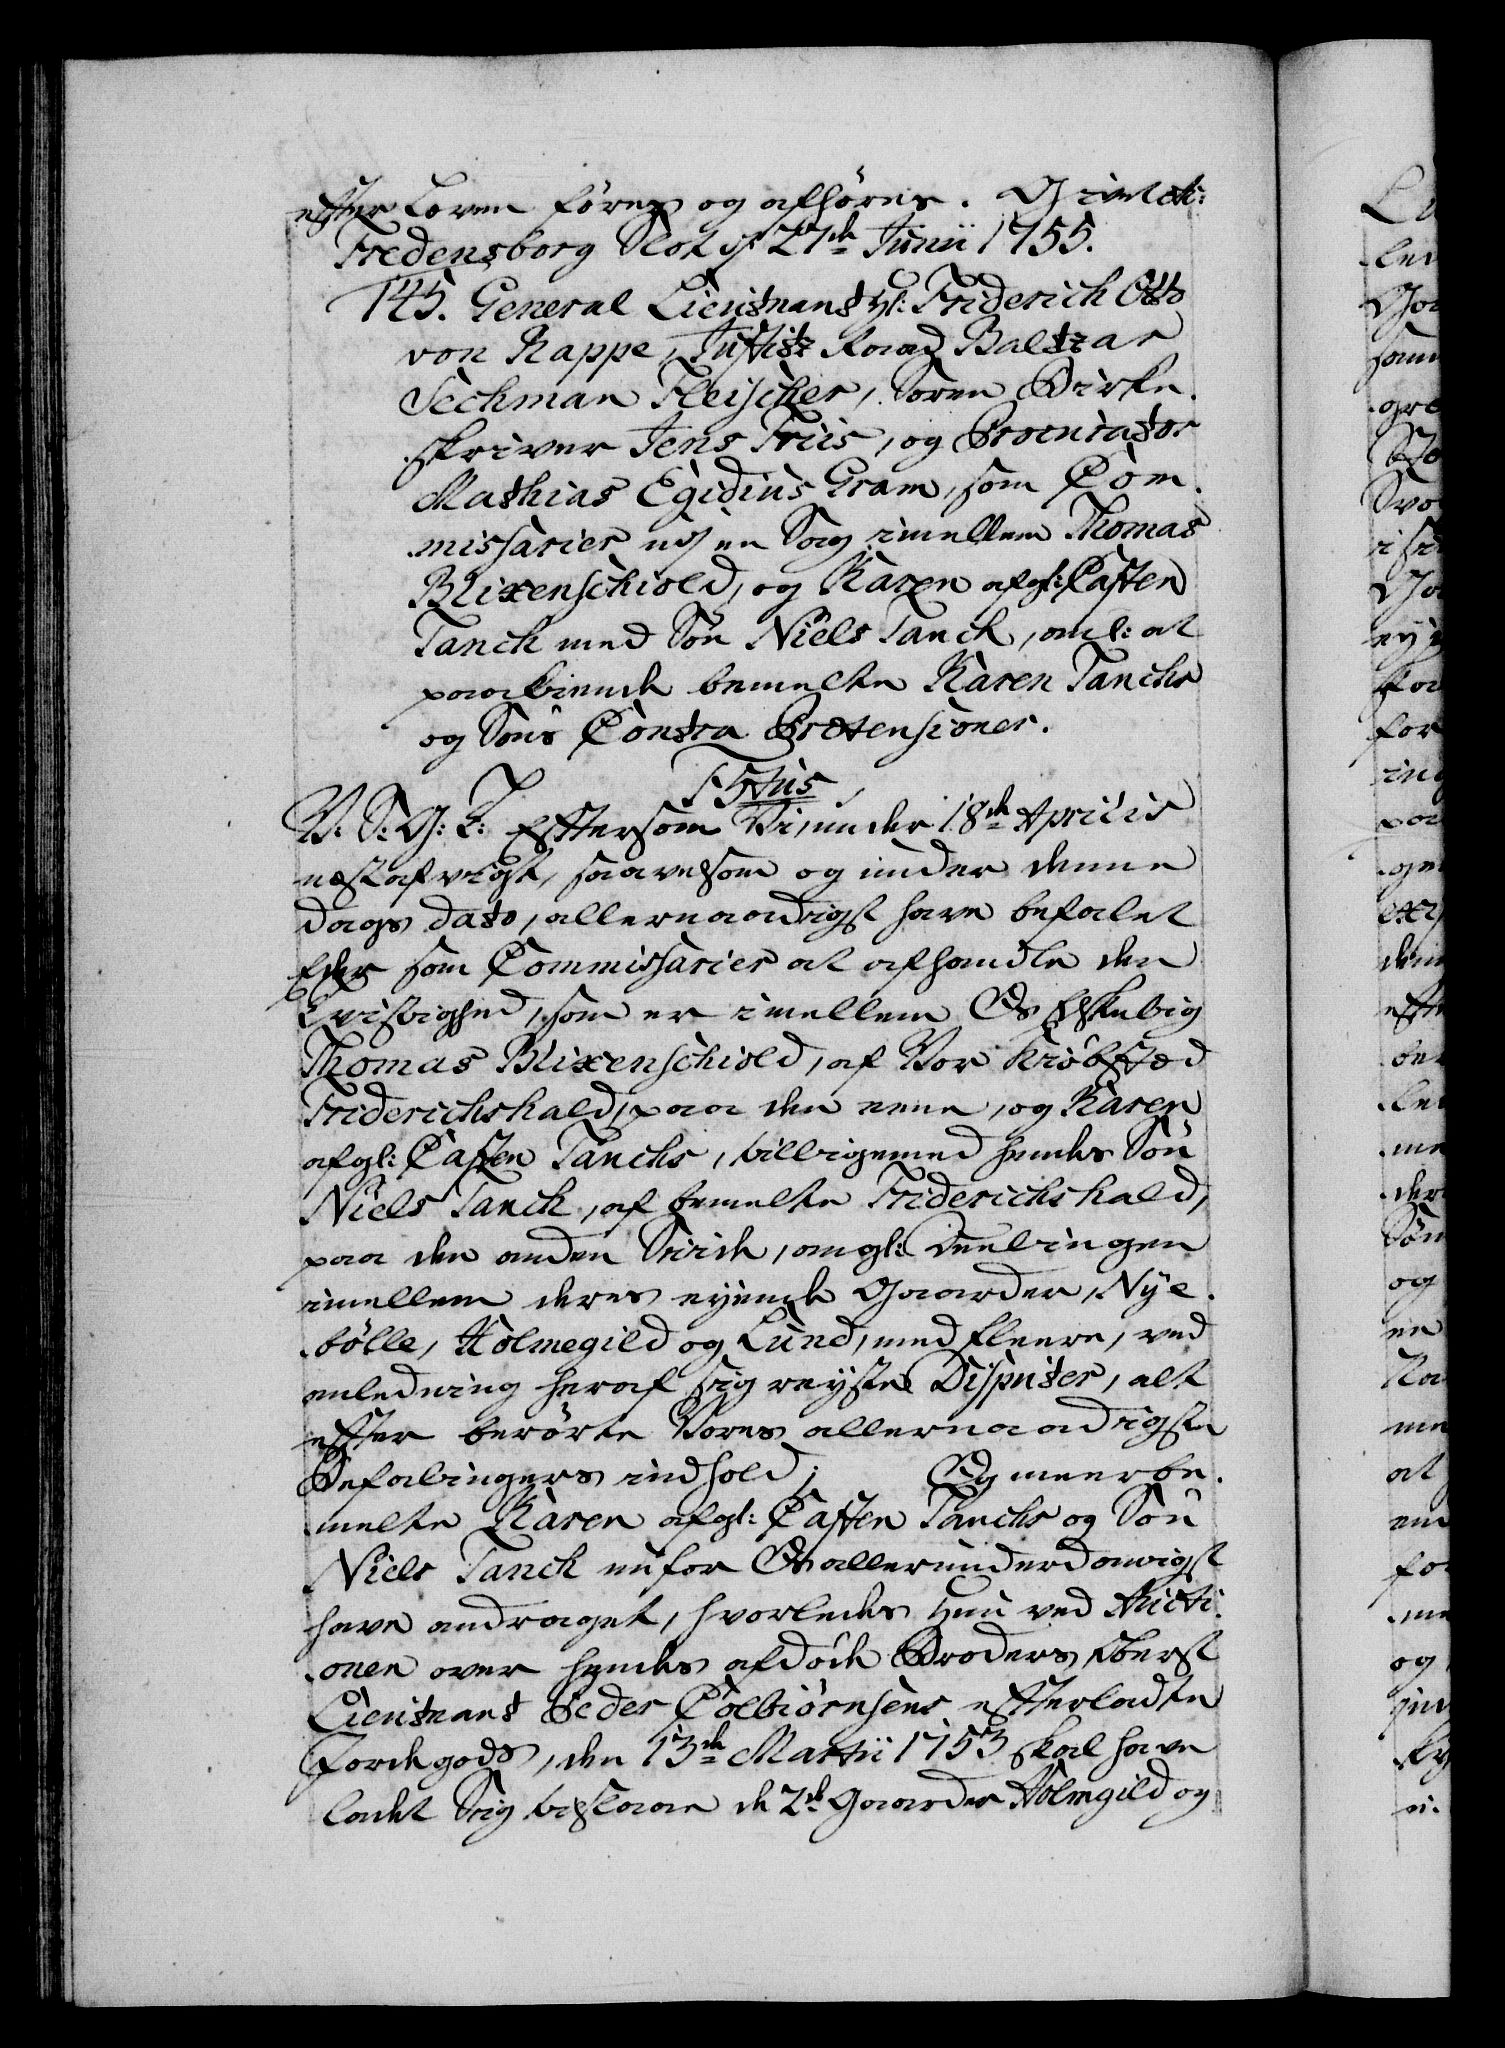 efter Loven föres og afhöres. Givet etc:
Fredensborg Slot ds 27de Junii 1755.
145. General Lieutnant Hl: Friderich Otto
von Rappe, Justitz Raad Baltzar
Sechman Fleischer, Soren Birke-
skriver Jens Friis, og Procurator
Mathias Egidius Gram, som Com-
missarier udj en Sag imellem Thomas
Blixenschiold, og Karen afgl: Casten
Tanch med Sön Niels Tanck, anl: at
paakiende bemelte Karen Tanchs
og Söns Contra Prætensioner.
F5tus,
V: S: G: T: Eftersom Vi under 18de Aprilis
nestafvigt, saavelsom og under denne
Dags dato, allernaadigst have befalet
Eder som Commissarier at afhandle den
Tvistighed, som er imellem Os Elskelig
Thomas Blixenschiold, af Vor Kiöbsted
Friderichshald, paa den eene, og Karen
afgl: Casten Tanchs, tilligemed hendes Sön
Niels Tanck, af bemelte Friderichshald,
paa den anden Side, angl: Deelingen
imellem deres eyende Gaarder, Nye-
bölle, Holmegild og Lund, med fleere, ved
anledning heraf sig reyste Disputer, alt
efter berörte Vores allernaadigste
Befalingers indhold; Og meerbe-
melte Karen afgl: Casten Tanchs og Sön
Niels Tanck nu for Os allerunderdanigst
have andraget, hvorledes Hun ved Aucti-
onen over hendes afdöde Broders Oberst
Lieutnant Peder Colbiörnsens efterladte
Jordegods, den 13de Martii 1753 skal have
ladet Sig tilslaae de 2de Gaarder Holmgild og